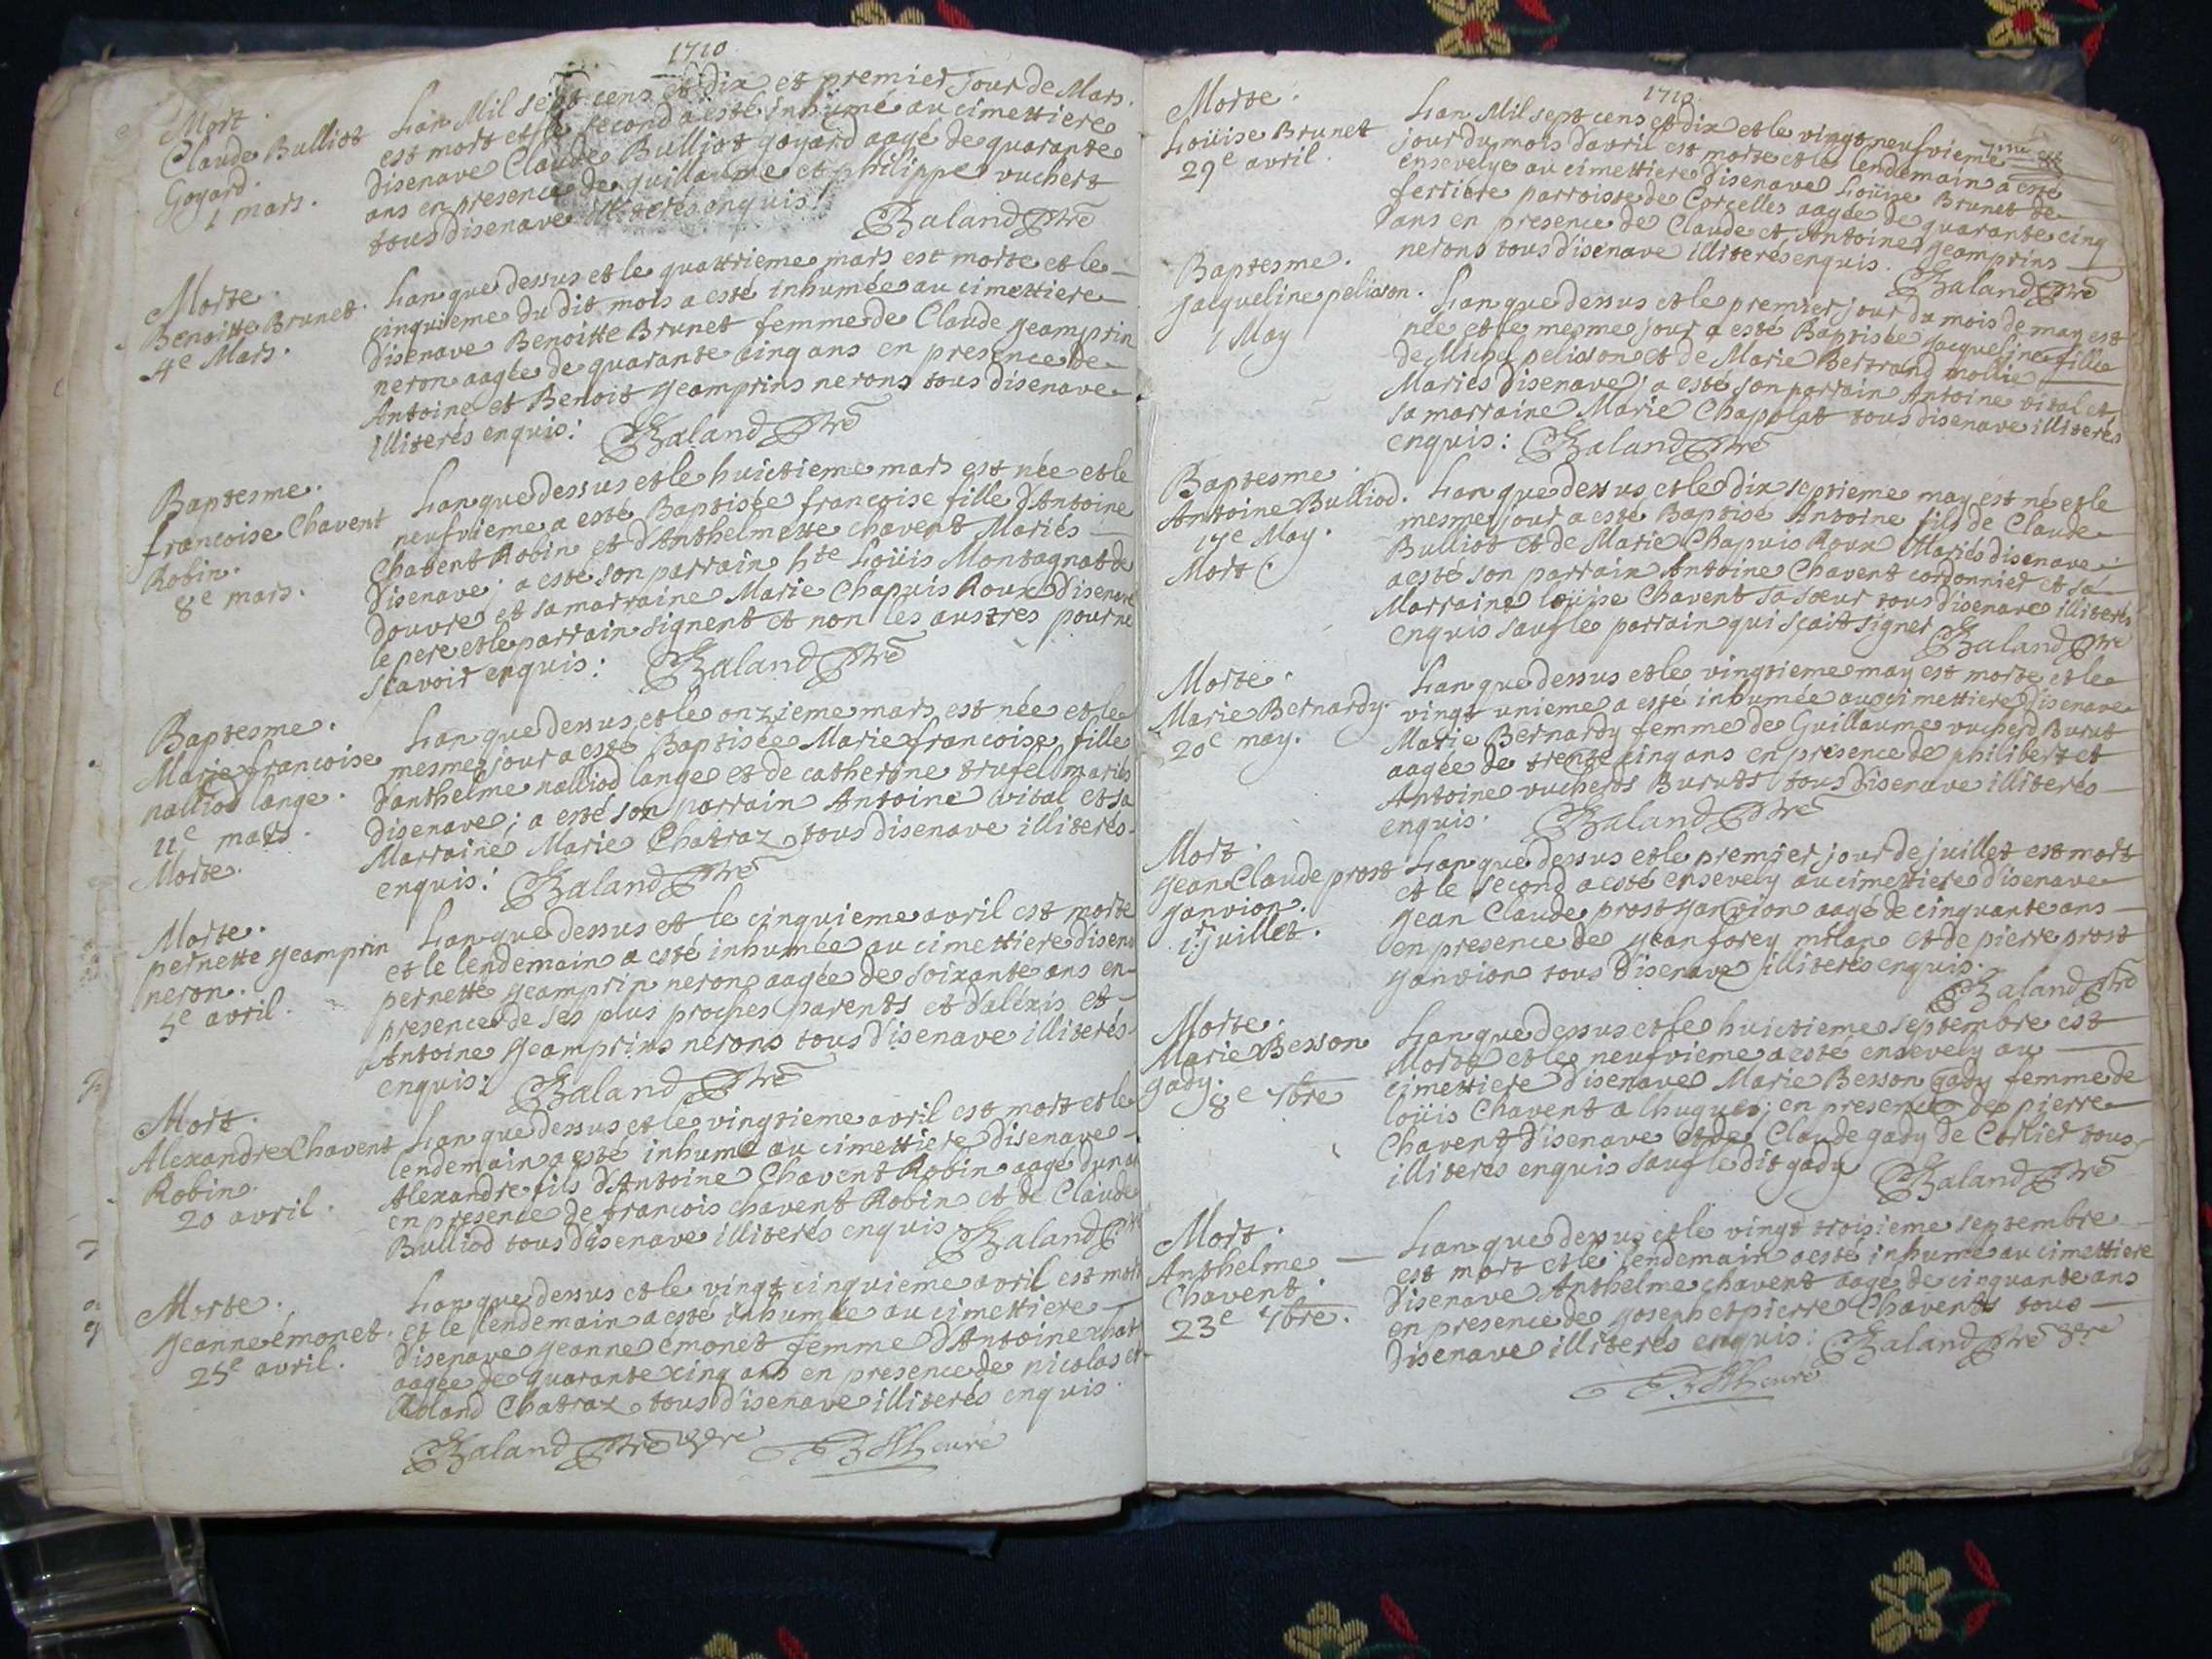 1710
Mort.
Claude Bulliot
Goyard.
1 mars.
Lan Mil sept cens et dix et premier jour de Mars.
est mort et le second a esté inhumé au cimettiere
disenave Claude Bulliot goyard aagé de quarante
ans en presence de guillaume et philippe vuchert
tous disenave illiterés enquis.
Baland ptre
Morte.
Benoitte Brunet.
4e Mars.
Lan que dessus et le quattrieme mars est morte et le
cinquieme du dit mois a esté inhumée au cimettiere
disenave Benoitte Brunet femme de Claude geamprin
neron aagée de quarante cinq ans en presence de
Antoine et Benoit geamprins nerons tous disenave
illiterés enquis: Baland ptre
Baptesme.
francoise Chavent
Robin.
8e mars.
Lan que dessus et le huictieme mars est née et le
neufvieme a esté Baptisée francoise fille d'Antoine
Chavent Robin et d'Anthelmette chavent Mariés
disenave; a esté son parrain hte Loüis Montagnat de
douvre et sa marraine Marie Chapuis Roux disenave
le pere et le parrain signent et non les austres pour ne
scavoir enquis: Baland ptre
Baptesme.
Marie francoise
nalliod lange.
11e mars.
Morte.
Lan que dessus et le onzieme mars est née et le
mesme jour a esté Baptisée Marie francoise fille
d'anthelme nalliod lange et de catherine trufel mariés
disenave; a esté son parrain Antoine vital et sa
Marraine Marie Chatraz tous disenave illiterés
enquis: Baland ptre
Morte.
pernette geamprin
neron.
5e avril.
Lan que dessus et le cinquieme avril est morte
et le lendemain a esté inhumée au cimettiere disena
pernette geamprin neron aagée de soixante ans en
presence de ses plus proches parents et d'aléxis et
Antoine geamprins nerons tous disenave illiterés
enquis: Baland ptre
Mort.
Alexandre Chavent
Robin.
20 avril.
Lan que dessus et le vingtieme avril est mort et le
lendemain a esté inhumé au cimettiere disenave
Alexandre fils d'Antoine Chavent Robin aagé dun an
en presence de francois chavent Robin et de Claude
Bulliod tous disenave illiterés enquis. Baland ptre
Morte.
geanne émonet.
25e avril.
Lan que dessus et le vingt cinquieme avril est morte
et le lendemain a esté inhumée au cimettiere
disenave geanne émonet femme d'Antoine
aagée de quarante cinq ans en presence de nicolas et
Roland Chatraz tous disenave illiterés enquis.
Baland ptre vgre curé
1710.
Morte.
Loüise Brunet
29e avril.
Lan Mil sept cens et dix et le vingt neufvieme
jour du mois d'avril est morte et le lendemain a esté
ensevelye au cimettiere disenave Loüise Brunet de
ferriere parroisse de Corcelles aagée de quarante cinq
ans en presence de Claude et Antoine geamprins
nerons tous disenave illiterés enquis.
Baland ptre
Baptesme.
jacqueline pelisson.
1 May
Lan que dessus et le premier jour du mois de may est
née et le mesme jour a esté Baptisée jacqueline fille
de Michel pelisson et de Marie Bertrand mollie
Mariés disenave; a esté son parrain Antoine vital et
sa marraine Marie Chappolat tous disenave illiterés
enquis: Baland ptre
Baptesme
Antoine Bulliod.
17e May.
Mort.
Lan que dessus et le dix septieme may est né et le
mesme jour a esté Baptisé Antoine fils de Claude
Bulliot et de Marie Chapuis Roux Mariés disenave
a esté son parrain Antoine Chavent cordonnier et sa
Marraine loüise Chavent sa soeur tous disenave illiterés
enquis sauf le parrain qui sçait signer Baland ptre
Morte.
Marie Bernardy.
20e may.
Lan que dessus et le vingtieme may est morte et le
vingt unieme a esté inhumée au cimettiere disenave
Marie Bernardy femme de Guillaume vucherd Burut
aagée de trente cinq ans en presence de philibert et
Antoine vucherds Buruts tous disenave illiterés
enquis. Baland ptre
Mort.
gean Claude prost
ganvion.
1.r juillet.
Lan que dessus et le premier jour de juillet est mort
et le second a esté ensevely au cimettiere disenave
gean Claude prost ganvion aagé de cinquante ans
en presence de gean forey milan et de pierre prost
ganvion tous disenave illiterés enquis.
Baland ptre
Morte.
Marie Besson
gady.
8e 7bre
Lan que dessus et le huictieme septembre est
Morte et le neufvieme a esté ensevely au
cimettiere disenave Marie Besson gady femme de
loüis Chavent a lhugues; en presence de pierre
Chavent disenave et de Claude gady de Corlier tous
illiteres enquis sauf le dit gady Baland ptre
Mort.
Anthelme
Chavent.
23e 7bre.
Lan que dessus et le vingt troisieme septembre
est mort et le lendemain a esté inhumé au cimettiere
disenave Anthelme chavent aagé de cinquante ans
en presence de joseph et pierre Chavents tous
disenave illiteres enquis: Baland ptre vgre
curé